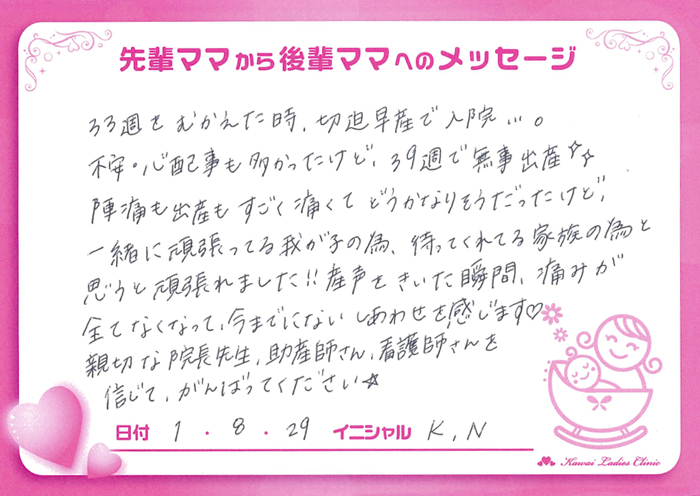 先輩ママから後輩ママへのメッセージ
33週をむかえた時、切迫早産で入院…。
不安・心配事も多かったけど、39週で無事出産☆☆
陣痛も出産もすごく痛くてどうかなりそうだったけど、
一緒に頑張ってる我が子の為、待ってくれてる家族の為と
思うと頑張れました!!産声をきいた瞬間、痛みが
全てなくなって、今までにないしあわせを感じます♡
親切な院長先生、助産師さん、看護師さんを
信じて、がんばってください☆
日付 1 . 8 . 29 イニシャル K.N
Kawai Ladies Clinic